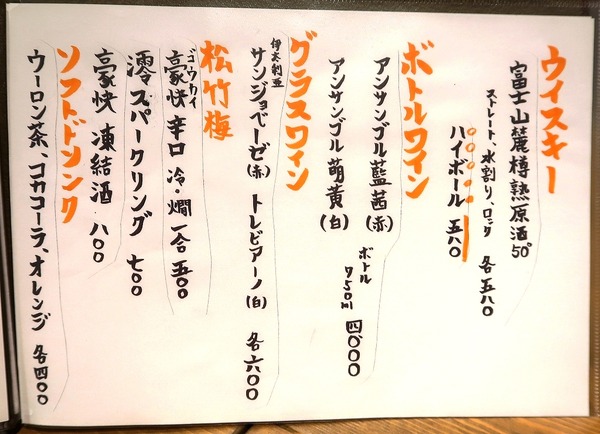 ウイスキー
富士山麓樽熟原酒50°
ストレート、水割り、ロック 各五八〇
ハイボール 五八〇
ボトルワイン
アンサンブル藍茜(赤)
アンサンブル萌黄(白)
ボトル 750ml 四、〇〇〇
グラスワイン
伊太利亜
サンジョベーゼ(赤) トレビアーノ(白) 各六〇〇
松竹梅
ゴウカイ
豪快 辛口 冷・燗 一合 五〇〇
澪 スパークリング 七〇〇
豪快 凍結酒 八〇〇
ソフトドリンク
ウーロン茶、コカコーラ、オレンジ 各四〇〇